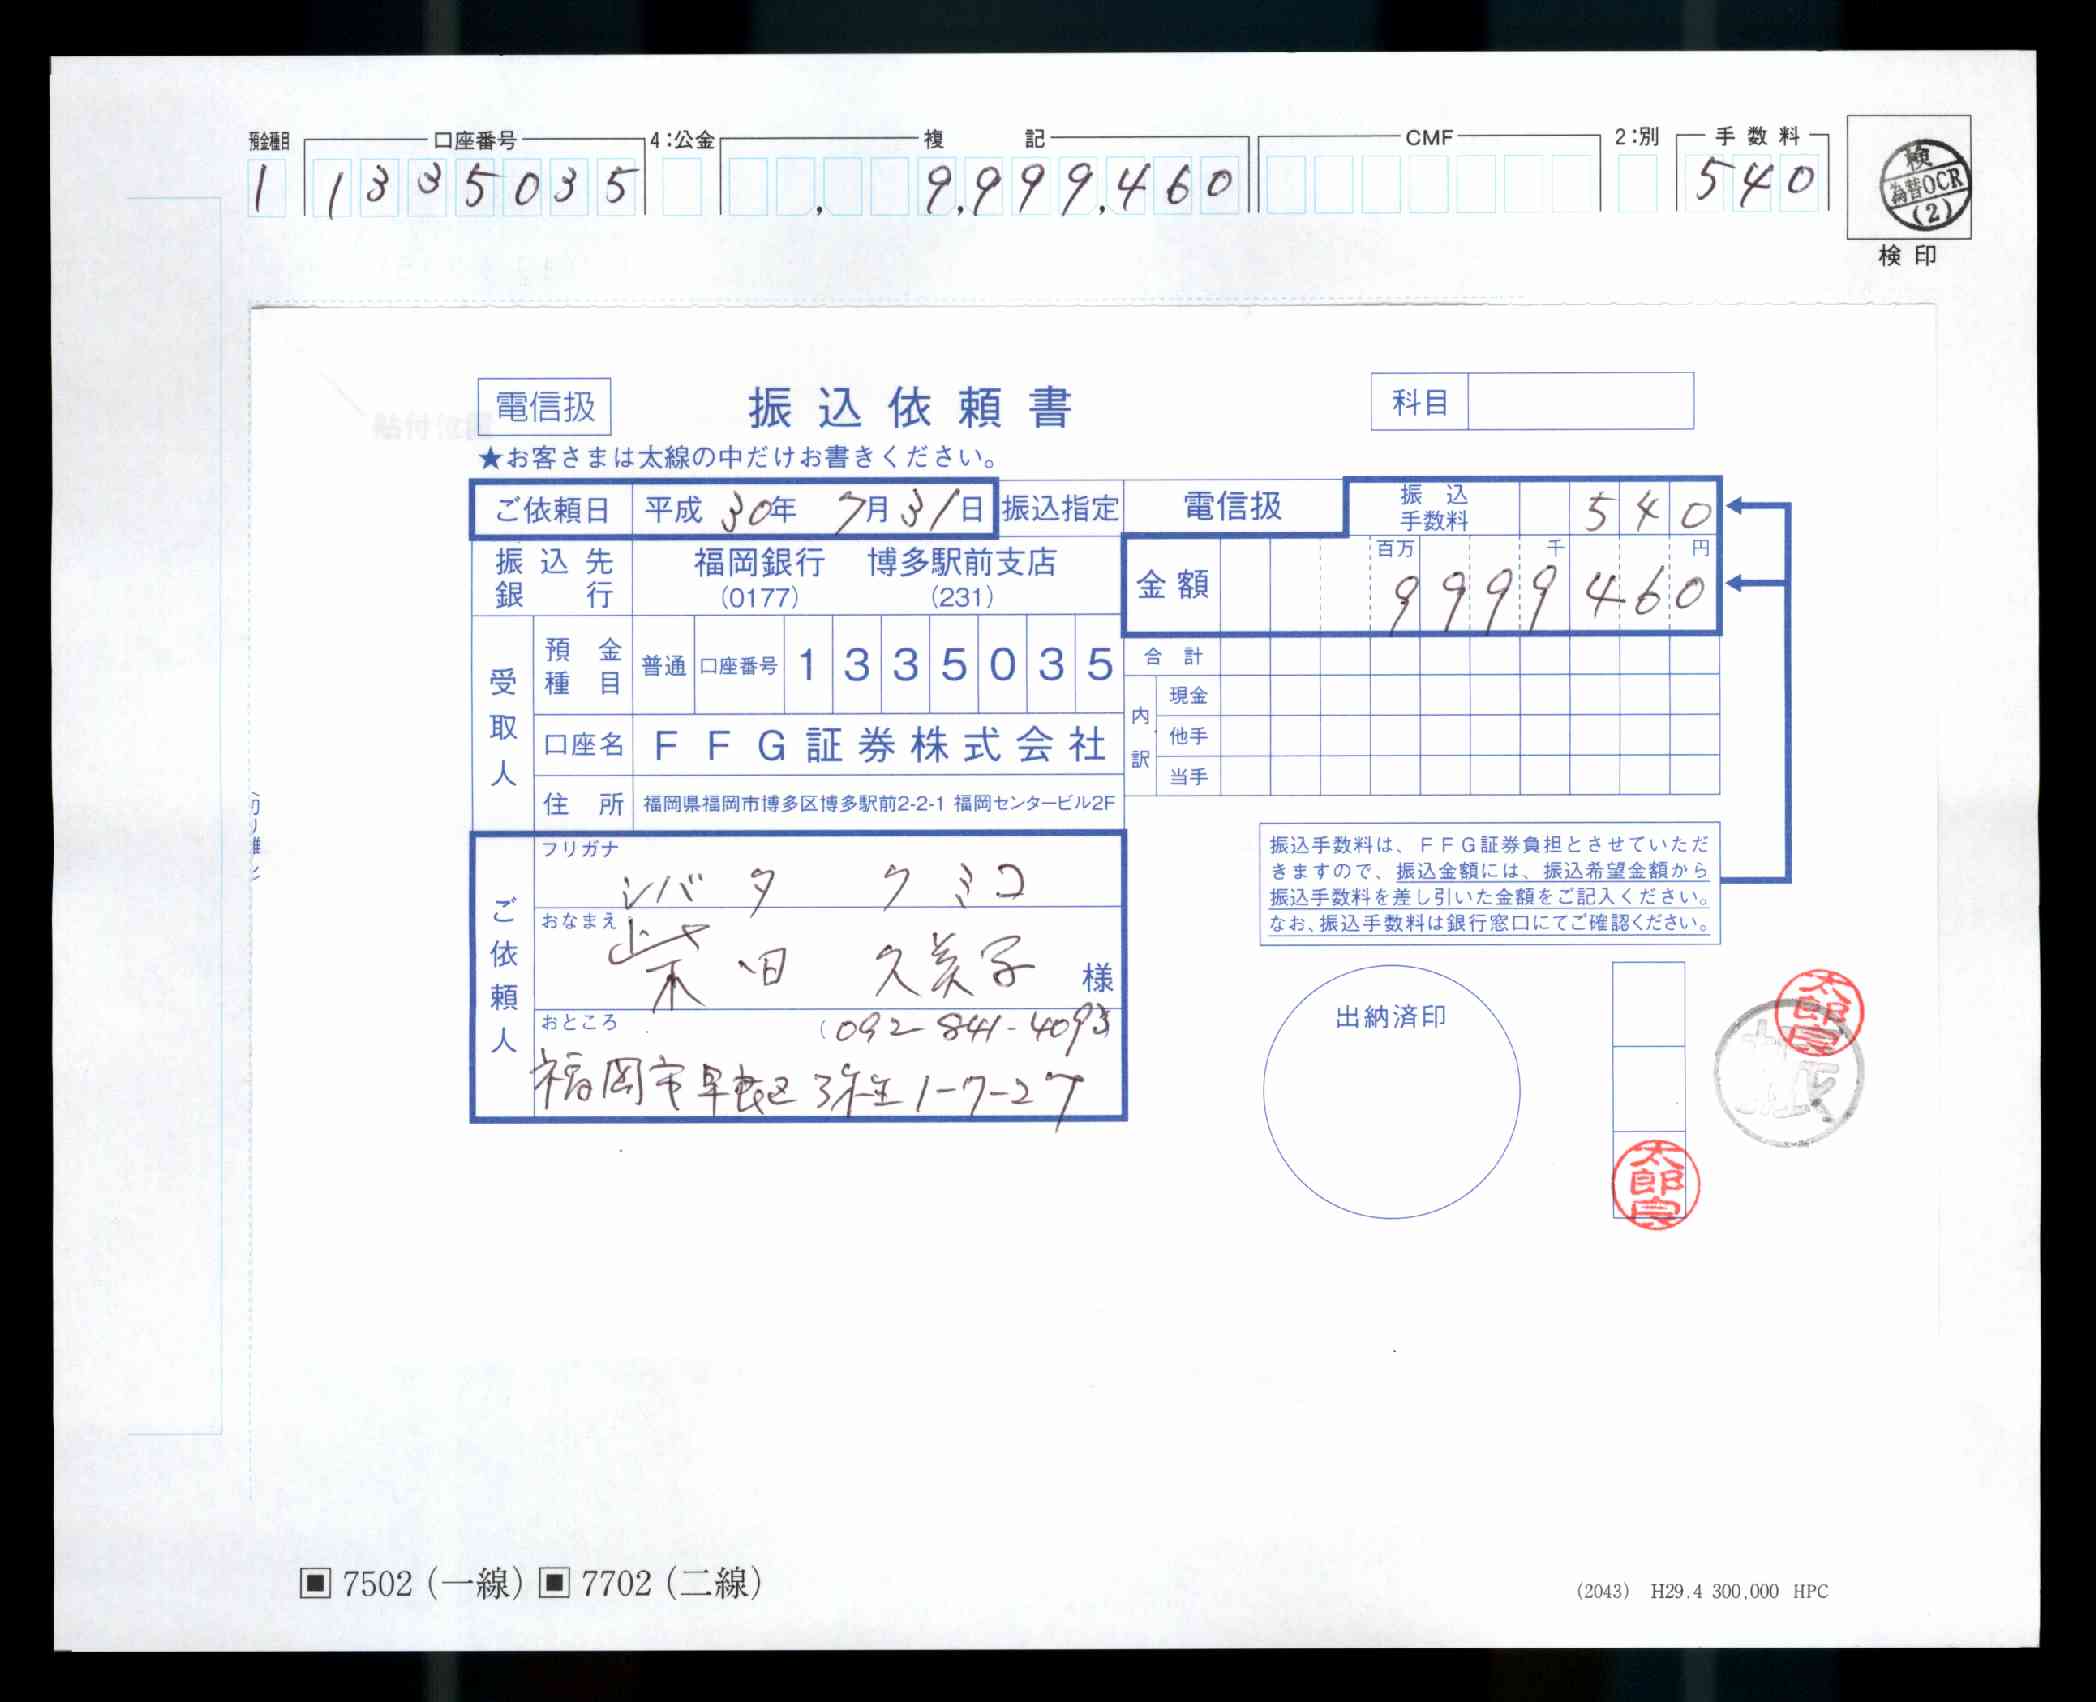 預金種目 口座番号 4:公金 複記 CMF 2:別 手数料
1 1335035 9,999,460 540
検 為替OCR (2)
検印
電信扱 振込依頼書 科目
★お客さまは太線の中だけお書きください。
ご依頼日 平成30年 7月31日 振込指定 電信扱 振込手数料 540
振込先銀行 福岡銀行 博多駅前支店
(0177) (231)
金額 百万 千 円
9999460
受取人 預金種目 普通 口座番号 1335035
口座名 FFG証券株式会社
住所 福岡県福岡市博多区博多駅前2-2-1 福岡センタービル2F
合計
内訳 現金
他手
当手
ご依頼人
フリガナ シバタ クミコ
おなまえ 柴田 久美子 様
おところ (092-841-4093
福岡市早良区弥生1-7-27
振込手数料は、FFG証券負担とさせていただ
きますので、振込金額には、振込希望金額から
振込手数料を差し引いた金額をご記入ください。
なお、振込手数料は銀行窓口にてご確認ください。
出納済印
太郎
太郎
7502(一線) 7702(二線)
(2043) H29.4 300,000 HPC